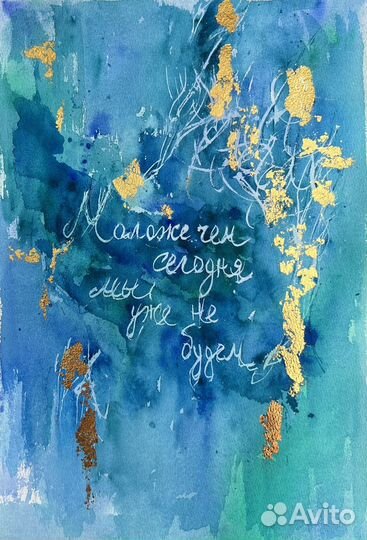 Моложе чем
сегодня
мы
уже не
будем
Avito